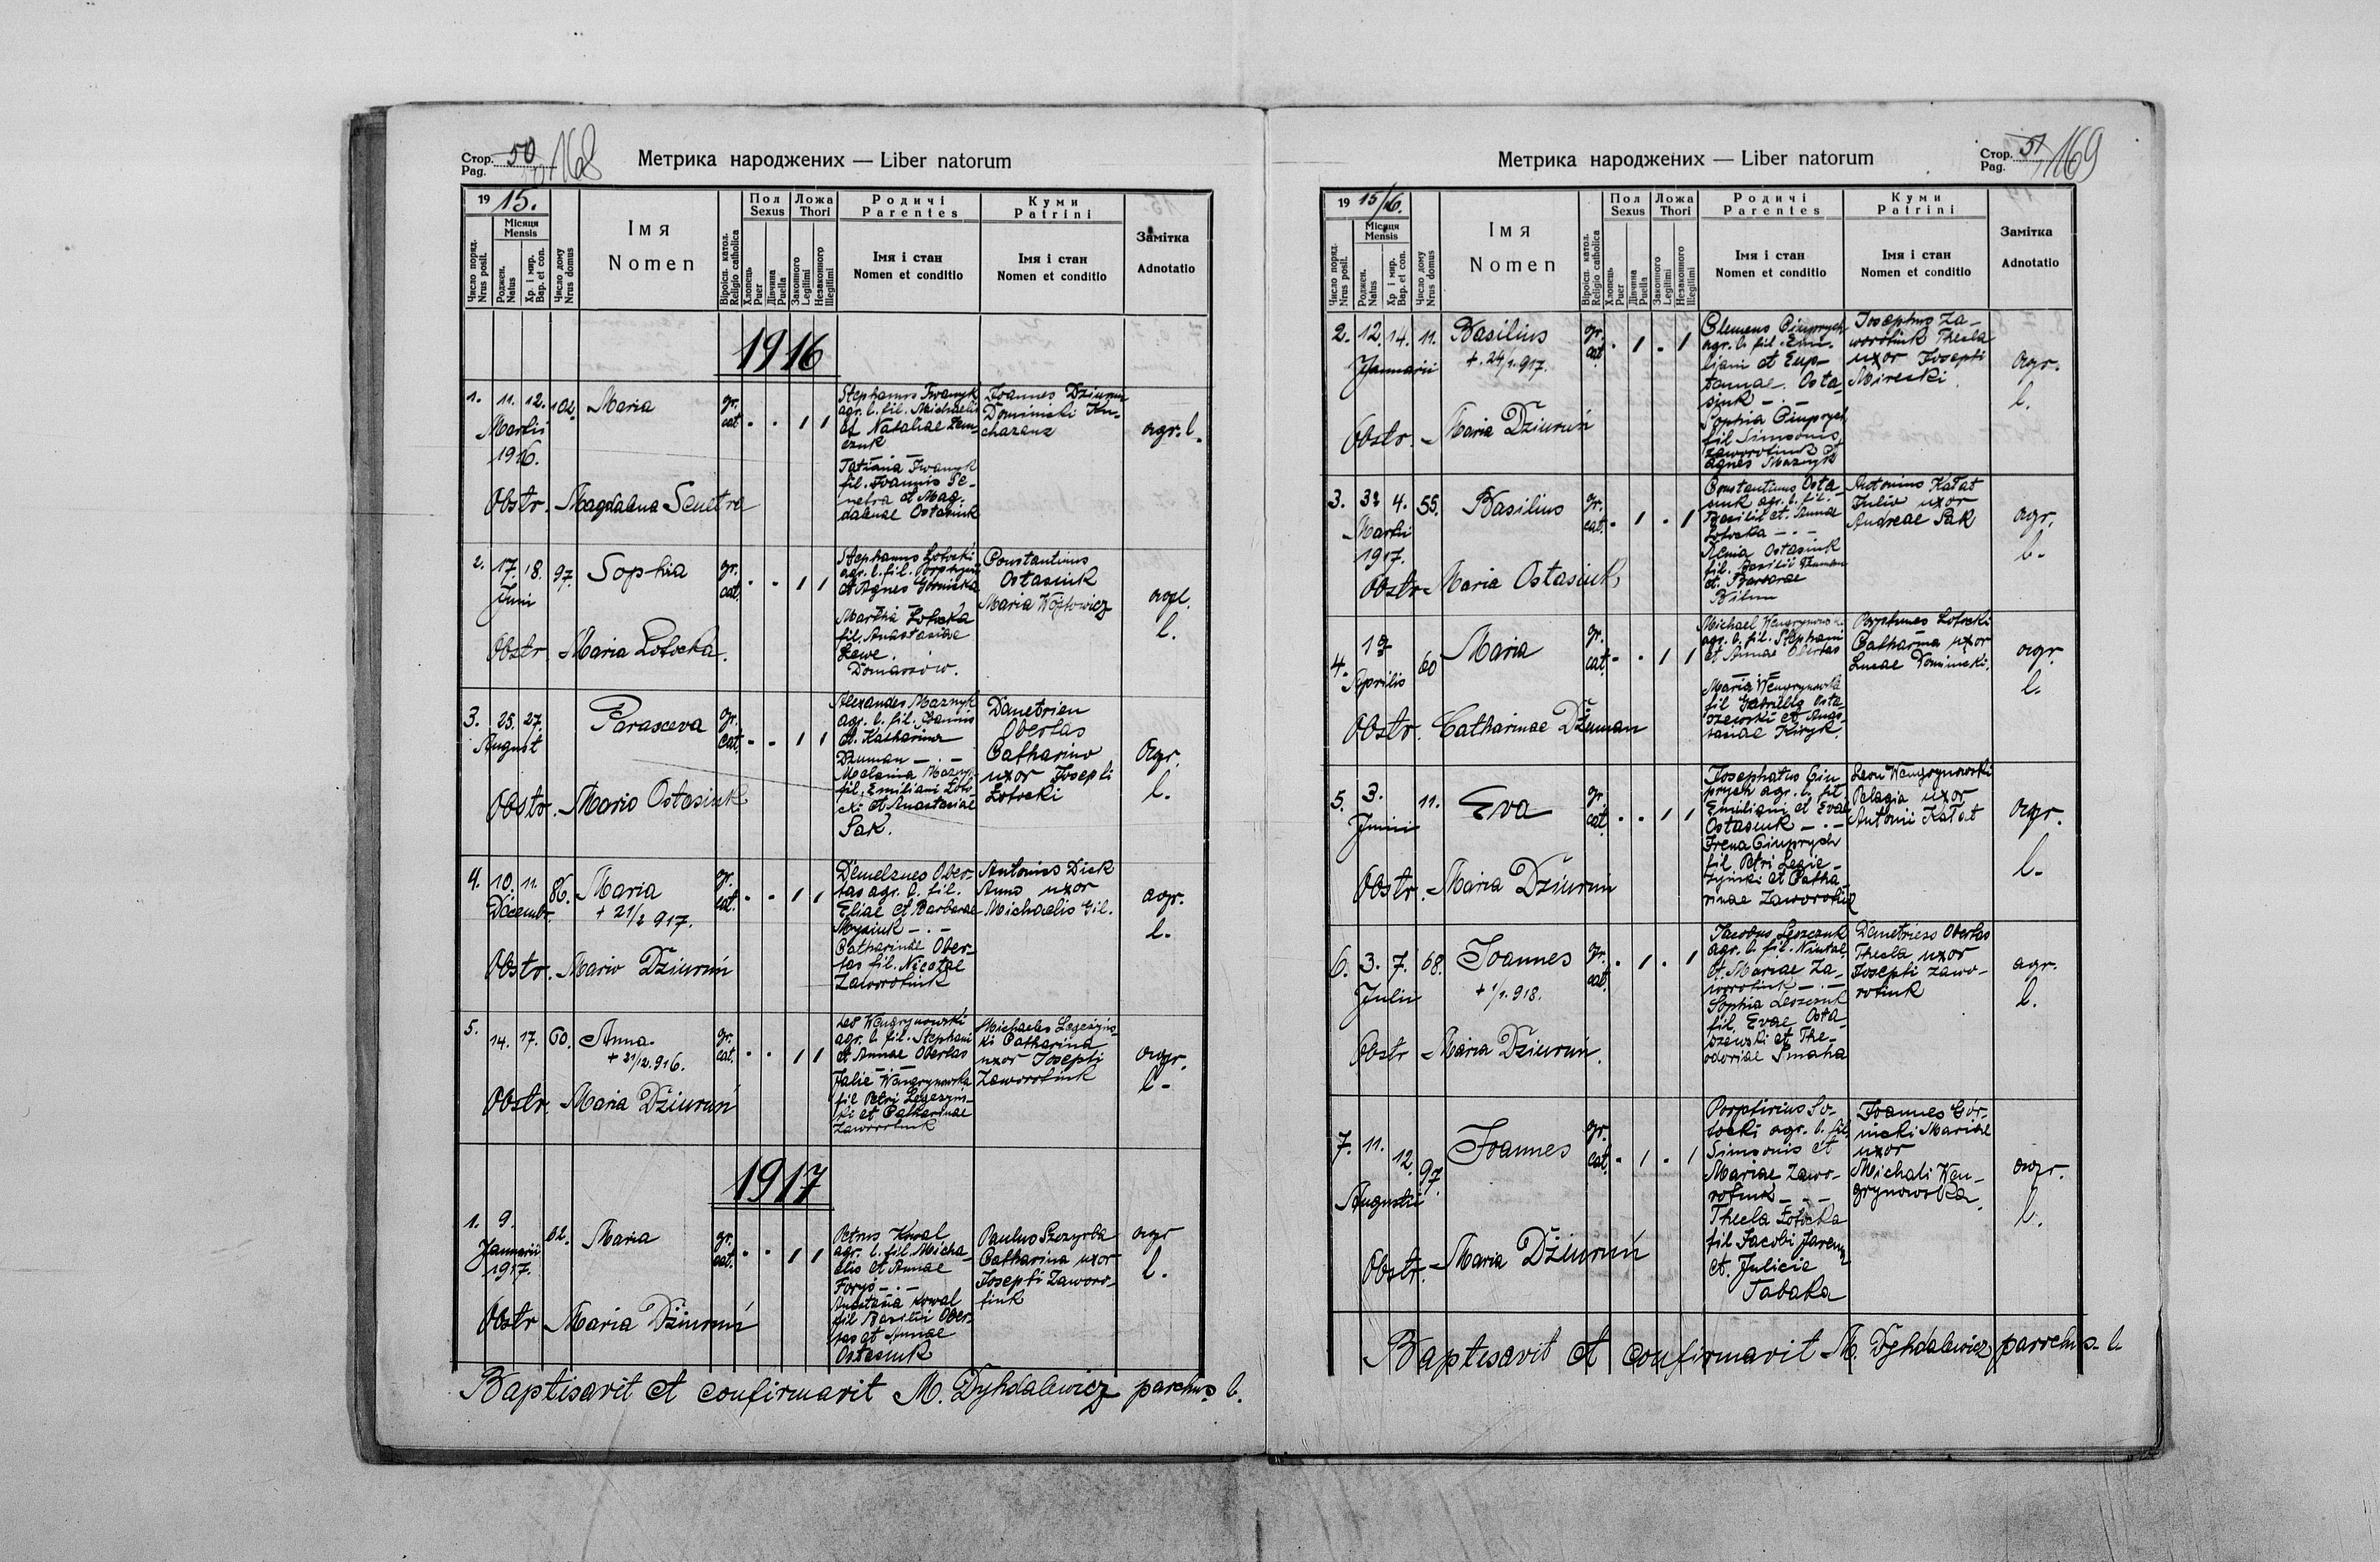 Стор. 50 168
Pag.
Метрика народжених — Liber natorum
19 15.
Число поряд. Nrus posit.
Місяця Mensis
Роджен. Natus
Хр. і мир. Bap. et con.
Число дому Nrus domus
Імя Nomen
Віроісп. катол. Religio catholica
Пол Sexus
Хлопець Puer
Дівчина Puella
Ложа Thori
Законного Legitimi
Незаконного Illegitimi
Родичі Parentes
Імя і стан Nomen et conditio
Куми Patrini
Імя і стан Nomen et conditio
Замітка Adnotatio
1916
1. 11. 12. 102. Maria gr. cat.
Martii
1916.
Stephanus Iwanyk
agr. l. fil. Michaelis
et Nataliae
Tatiana Iwanyk
fil. Joannis Se-
netra et Mag-
dalenae Ostasiuk
Joannes Dziurun
agr. l.
Obstr. Magdalena Senetra
2. 17. 18. 97. Sophia gr. cat.
Juni
Stephanus Łotocki
agr. l. fil. Porphyrii
et Agnes
Martha Łotocka
fil. Anastasiae
Constantinus
Ostasiuk
Maria Wojtowicz
agr.
l.
Obstr. Maria Łotocka.
3. 25. 27. Parasceva gr. cat.
August
Alexander Maznyk
agr. l. fil. Joannis
et Katharina
Dzuman —.—
Melania
fil. Emiliani Łoto-
cki et Anastasiae
Sak.
Demetrien
Obertas
Catharina
uxor Josephi
Łotocki
agr.
l.
Obstr. Maria Ostasiuk
4. 10. 11. 86. Maria gr. cat.
Decembr. + 21/2 917.
Ober-
tas agr. l. fil.
Eliae et Barbarae
—.—
Catharinae Ober-
tas fil. Nicolae
Zaworotiuk
Antonius Dick
Anna uxor
Michaelis Gil.
agr.
l.
Obstr. Maria Dziuruń
5. 14. 17. 60. Anna gr. cat.
+ 31/12. 916.
Leo Wengrynowski
agr. l. fil. Stephani
et Annae Obertas
Julie Wengrynowska
fil Petri Legezyń-
ski et Catharinae
Zaworotiuk
Michaeles Legezyńs-
ki Catharina
uxor Josephi
Zaworotiuk
agr.
l.
Obstr. Maria Dziuruń
1917
1. 9. Maria gr. cat.
Januarii
1917.
Petrus Kowal
agr. l. fil. Micha-
elis et Annae
—.—
Anastasia Kowal
fil Basilii Ober-
tas et Annae
Ostasiuk
Paulus Szczyrba
Catharina uxor
Josephi Zaworo-
tiuk
agr
l.
Obstr. Maria Dziuruń
Baptisavit et confirmavit M. Dyhdalewicz parchus l.
Метрика народжених — Liber natorum
Стор. 51 169
Pag.
19 15/16.
Число поряд. Nrus posit.
Місяця Mensis
Роджен. Natus
Хр. і мир. Bap. et con.
Число дому Nrus domus
Імя Nomen
Віроісп. катол. Religio catholica
Пол Sexus
Хлопець Puer
Дівчина Puella
Ложа Thori
Законного Legitimi
Незаконного Illegitimi
Родичі Parentes
Імя і стан Nomen et conditio
Куми Patrini
Імя і стан Nomen et conditio
Замітка Adnotatio
2. 12. 14. 11. Basilius gr. cat.
Januarii + 24/1. 917.
Clemens Ciuprych
agr. l. fil. Emi-
liani et
Osta-
siuk —.—
Sophia Ciuprych
fil Simeonis
Zaworotiuk et
Agnes Maznyk
Josephus Za-
worotiuk Thecla
uxor Josephi
Mirecki.
agr.
l.
Obstr. Maria Dziuruń
3. 4. 55. Basilius gr. cat.
Martii
1917.
Constantinus Osta-
siuk agr. l. fil.
Basilii et Annae
Łotocka —.—
Ostasiuk
fil. Basilii Dzuman
et Barbarae
Antonius Kałat
Julia uxor
Andreae Sak
agr.
l.
Obstr. Maria Ostasiuk
4. 60 Maria gr. cat.
Aprilis
Michael Wengrynowski
agr. l. fil. Stephani
et Annae Obertas
Maria Wengrynowska
fil Gabrielis Osta-
szewski et Anas-
tasiae Kiryk.
Łotocki
Catharina uxor
Lucae Dominicki.
agr.
l.
Obstr. Catharinae Dzuman
5. 3. 11. Eva gr. cat.
Junii
Josephatus Ciu-
prych agr. l. fil.
Emiliani et Evae
Ostasiuk —.—
Irena Ciuprych
fil Petri Legie-
zyński et Catha-
rinae Zaworotiuk
Leon Wengrynowski
Pelagia uxor
Antonii Kałat
agr.
l.
Obstr. Maria Dziuruń
6. 3. 7. 68. Joannes gr. cat.
Julii + 1/1. 918.
Jacobus Leszczuk
agr. l. fil.
et Mariae Za-
worotiuk —.—
Sophia Leszczuk
fil. Evae Osta-
szewski et The-
odoriae Smaha
Demetriess Obertas
Thecla uxor
Josephi Zawo-
rotiuk
agr.
l.
Obstr Maria Dziuruń.
7. 11. 12. 97. Joannes gr. cat.
Augusti
Porphirius Ło-
tocki agr. l. fil.
Simeonis et
Mariae Zawo-
rotiuk —.—
Thecla Łotocka
fil Jacobi
et Julicie
Tabaka
Joannes Gór-
nicki Mariae
uxor
Michali Wen-
grynowska.
agr.
l.
Obstr. Maria Dziuruń
Baptisavit et confirmavit M. Dyhdalewicz parrchus. l.